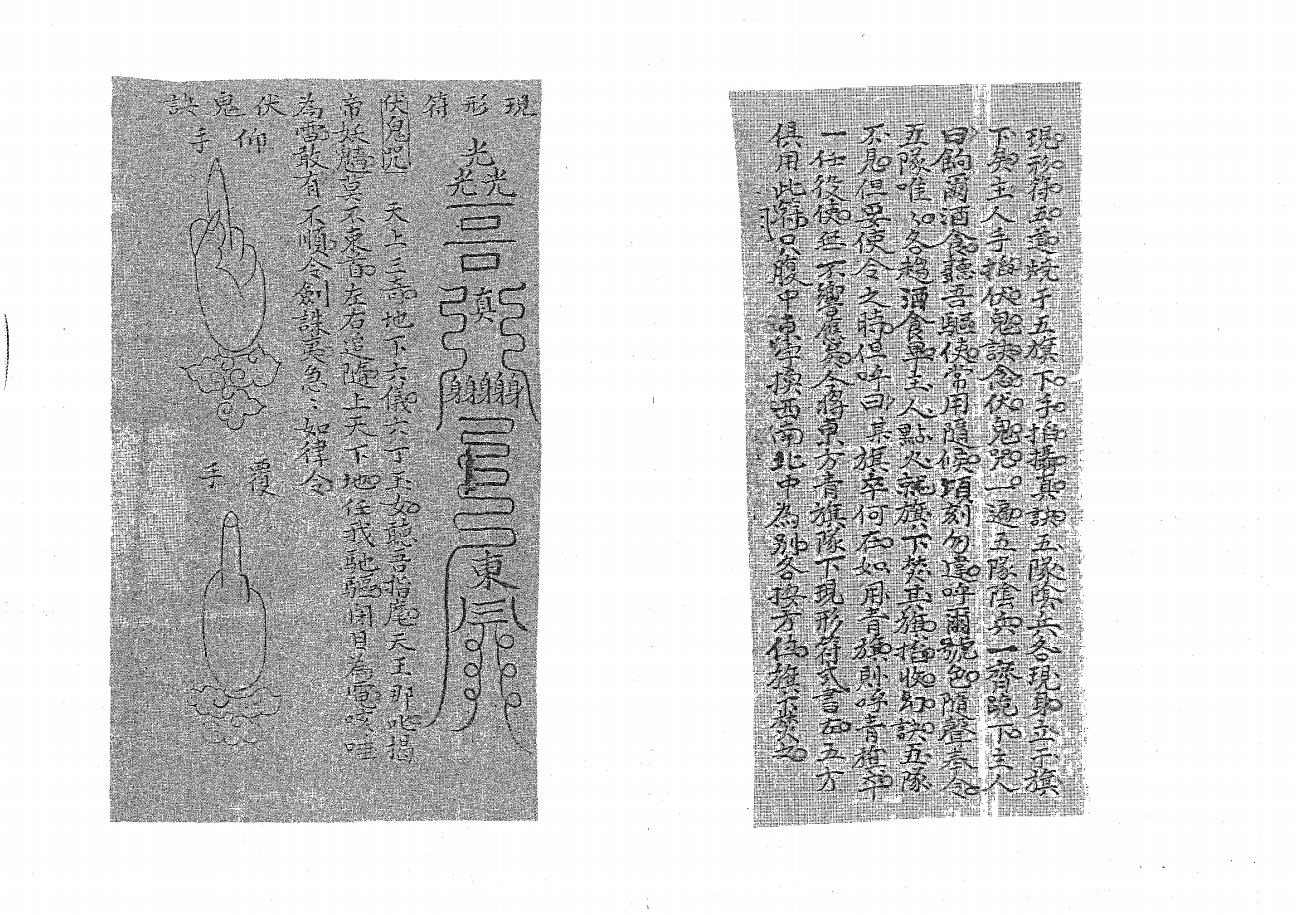 現形符五道燒于五旗下手掐攝真訣五隊陰兵各現身立于旗
下矣主人手掐伏鬼訣念伏鬼咒一遍五隊陰兵一齊跪下主人
曰餉爾酒食聽吾驅使常用隨候頃刻勿違呼爾號色隨聲奉令
五隊唯唯各趨酒食畢主人點火就旗下焚其旗掐收訣五隊
不見但要使令之時但呼曰某旗卒何在如用青旗則呼青旗卒
一任役使無不響應篤令將東方青旗隊下現形符式書在五方
俱用此符只腹中東字換西南北中為別各按方位旗下焚之
現形符
光
光光
真
東
伏鬼咒 天上三奇地下六儀六丁玉女聽吾指麾天王那吒揭
帝妖魑莫不東首左右追隨上天下地任我馳驅閉目為電咳唾
為雪敢有不順令劍誅夷急々如律令
伏鬼訣
仰手
覆手